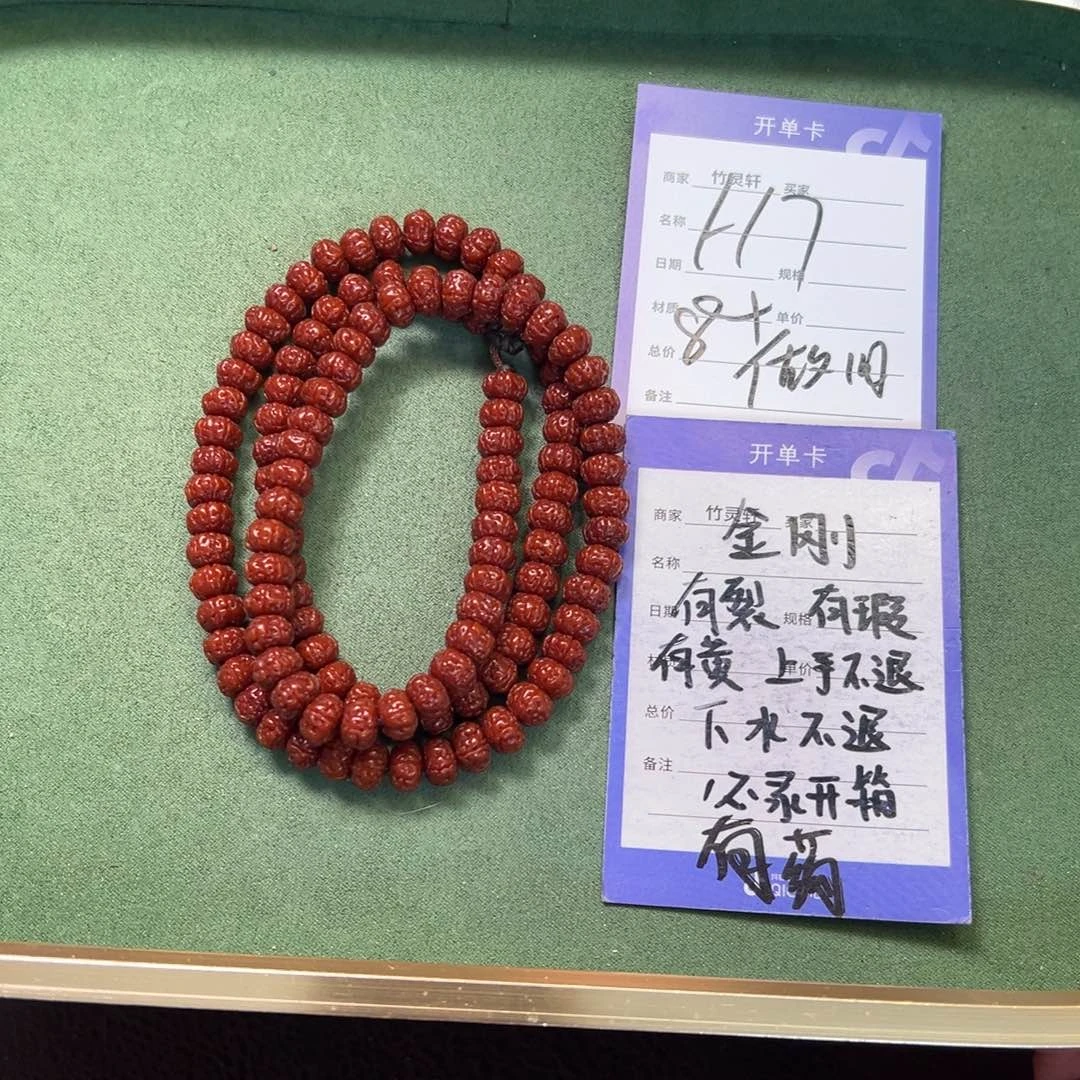 开单卡
商家 竹灵轩 买家
名称
117
日期 规格
材质 单价
8+
总价
做旧
备注
开单卡
商家 竹灵轩
金刚
名称
日期 规格
有裂 有瑕
单价
有黄 上手不退
总价
下水不退
备注
必录开箱
有药